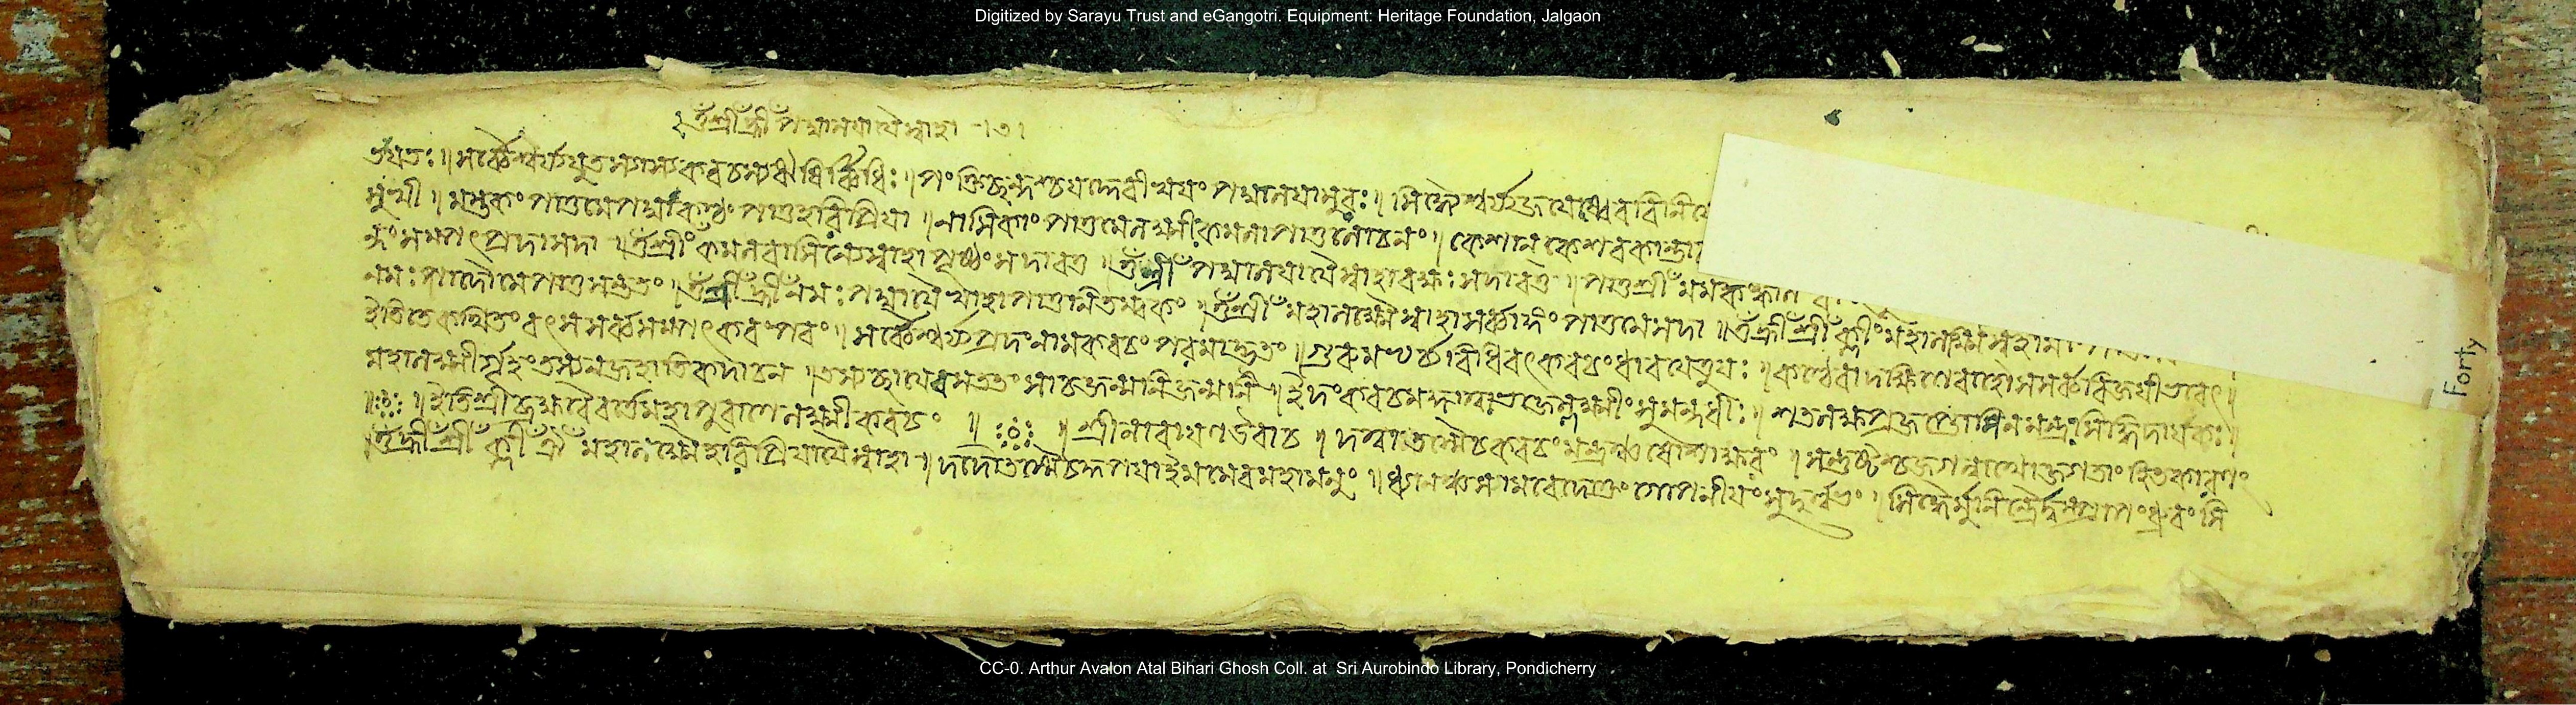 Digitized by Sarayu Trust and eGangotri. Equipment: Heritage Foundation, Jalgaon
ওঁ শ্রীঁ হ্রীঁ পদ্মালয়ায়ৈ স্বাহা ।৩।
সর্ব্বৈশ্বর্য্য ঋষিবিধিঃ ॥ পংক্তিশ্ছন্দশ্চ দেবী স্বয়ং পদ্মালয়া সিদ্ধৈশ্বর্য্য
॥ মস্তকং পাতু মে পদ্মা কণ্ঠং পাতু হরিপ্রিয়া ॥ নাসিকাং পাতু মে লক্ষ্মীঃ কমলা পাতু লোচনং ॥ কেশান কেশবকান্তা
সম্পৎপ্রদা সদা ॥ ওঁ শ্রীঁ কমলবাসিন্যৈ স্বাহা পৃষ্ঠং সদাবতু ॥ ওঁ শ্রীঁ পদ্মালয়ায়ৈ স্বাহা বক্ষঃ সদাবতু ॥ পাতু শ্রীঁ মম
নমঃ পাদৌ মে পাতু সন্ততং ॥ ওঁ শ্রীঁ হ্রীঁ নমঃ পদ্মায়ৈ স্বাহা পাতু নিতম্বকং ॥ ওঁ শ্রীঁ মহালক্ষ্ম্যৈ স্বাহা সর্ব্বাঙ্গং পাতু মে সদা ॥ ওঁ হ্রীঁ শ্রীঁ ক্লীঁ
ইতি তে কথিতং বৎস সর্ব্বসম্পৎকরং পরং ॥ সর্ব্বৈশ্বর্য্যপ্রদং নাম কবচং পরমাদ্ভুতং ॥ গুরুমভ্যর্চ্চ্য বিধিবৎ কবচং ধারয়েত্তু যঃ ॥ কণ্ঠে বা দক্ষিণে বাহৌ স সর্ব্ববিজয়ী ভবেৎ ॥
মহালক্ষ্মীর্গৃহং তস্য ন জহাতি কদাচন ॥ তস্য ছায়েব সততং সা চ জন্মনি জন্মনি ॥ ইদং কবচমজ্ঞাত্বা ভজেল্লক্ষ্মীং সুমন্দধীঃ ॥ শতলক্ষপ্রজপ্তোপি ন মন্ত্রঃ সিদ্ধিদায়কঃ ॥
॥ ইতি শ্রীব্রহ্মবৈবর্ত্তে মহাপুরাণে লক্ষ্মীকবচং ॥ শ্রীনারায়ণ উবাচ ॥ দত্বা তস্মৈ চ কবচং মন্ত্রঞ্চ ষোড়শাক্ষরং ॥ সন্তুষ্টশ্চ জগন্নাথো জগতাং হিতকারণং
॥ ওঁ হ্রীঁ শ্রীঁ ক্লীঁ মহালক্ষ্ম্যৈ হরিপ্রিয়ায়ৈ স্বাহা ॥ দদৌ তস্মৈ চ কৃপয়া ইমমেব মহামনুং ॥ ধ্যানঞ্চ সামবেদোক্তং গোপনীয়ং সুদুর্ল্লভং ॥ সিদ্ধৈর্মুনিন্দ্রৈ ধ্রুবং সি
Forty
CC-0. Arthur Avalon Atal Bihari Ghosh Coll. at Sri Aurobindo Library, Pondicherry